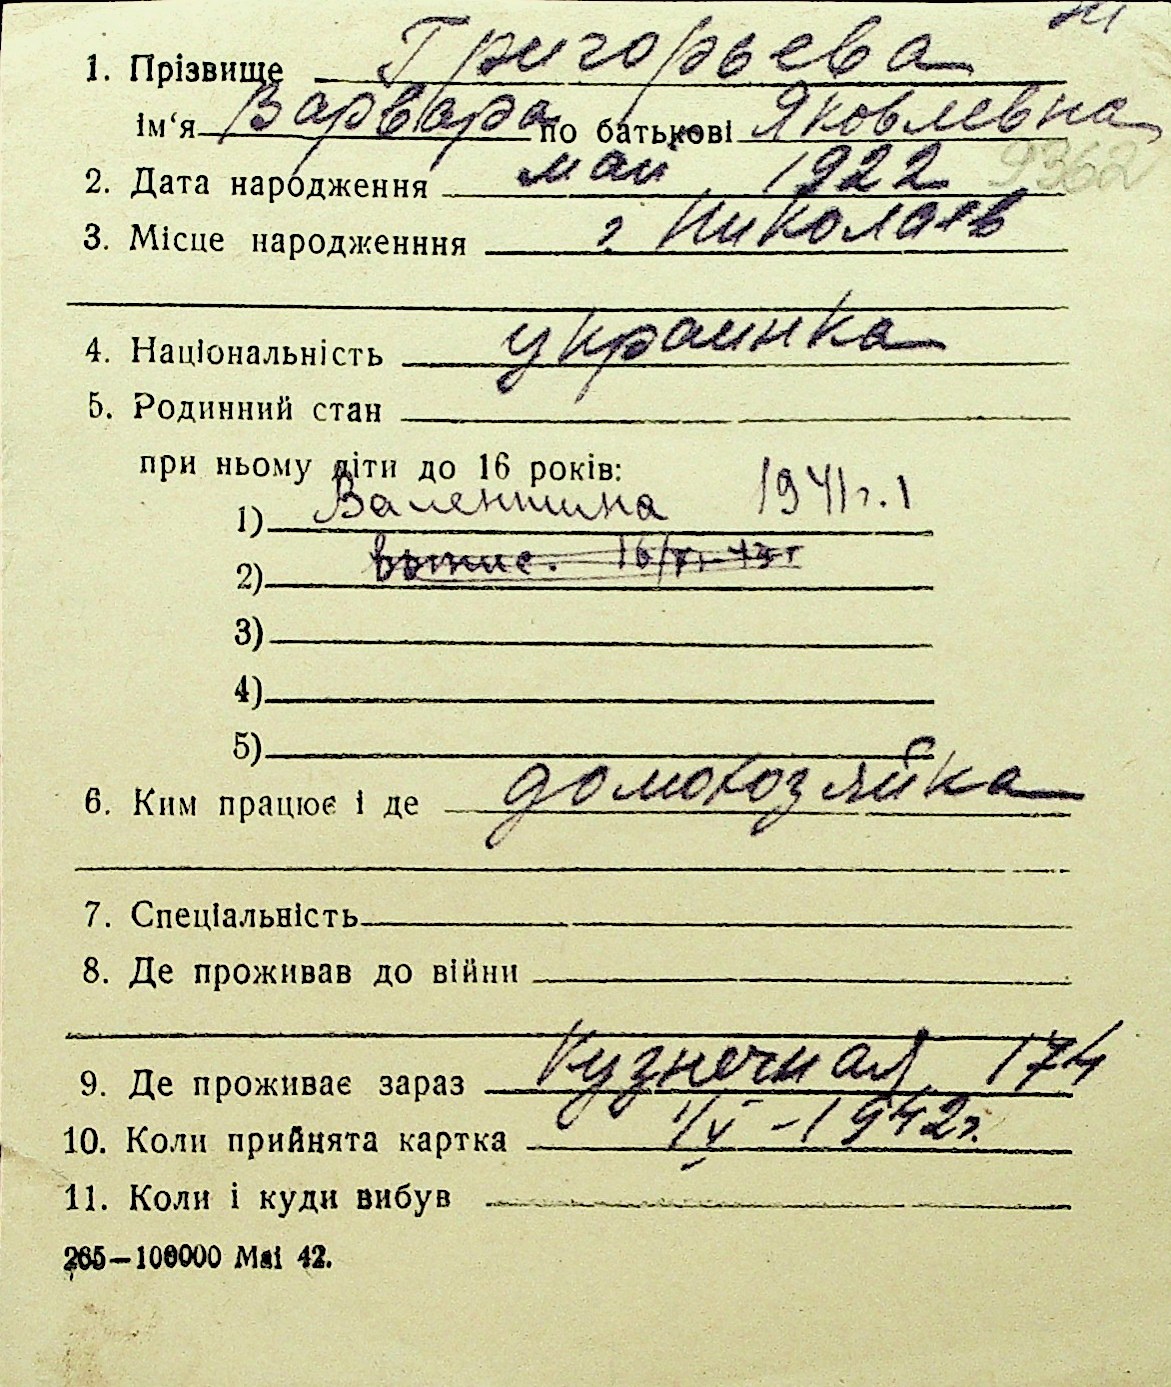 1. Прізвище Григорьева
ім‘я Варвара по батькові Яковлевна
2. Дата народження май 1922 9362
3. Місце народженння г Николаев
4. Національність украинка
5. Родинний стан
при ньому діти до 16 років:
1) Валентина 1941г.
2) 16/VI-43г
3)
4)
5)
6. Ким працює і де домохозяйка
7. Спеціальність
8. Де проживав до війни
9. Де проживає зараз Кузнечная 174
10. Коли прийнята картка 1/V-1942г.
11. Коли і куди вибув
265—100000 Маі 42.